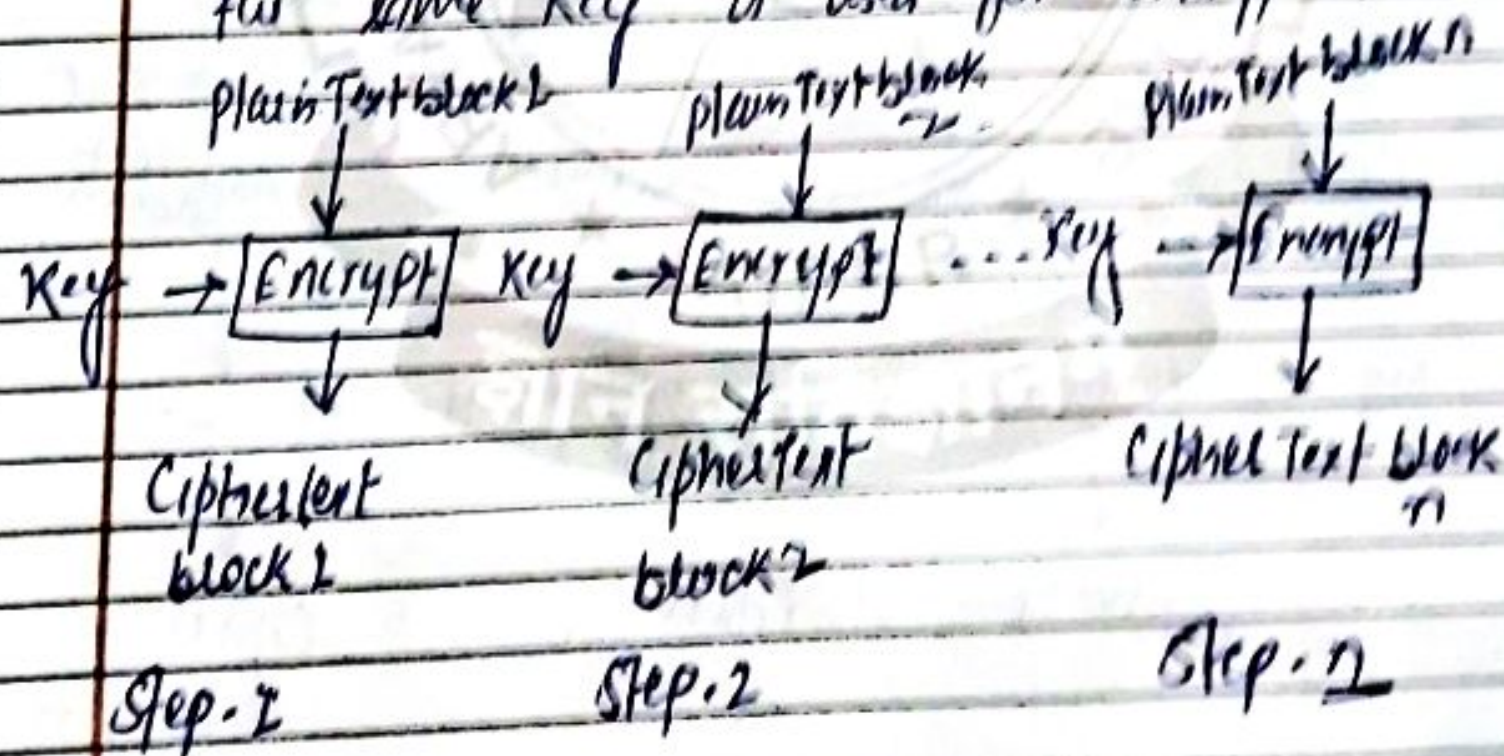 same key is used for
PlainText block 1 PlainText block 2 PlainText block n
Key → Encrypt Key → Encrypt ....Key → Encrypt
CipherText block 1 CipherText block 2 Cipher Text block n
Step.1 Step.2 Step.n